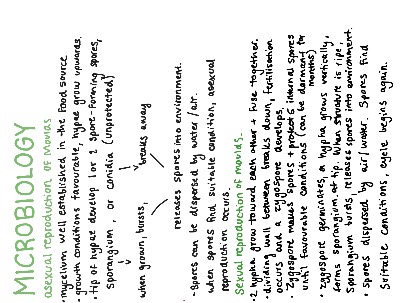 MICROBIOLOGY
asexual reproduction of Movlds
• mycelium well established in the food source
• growth conditions favourable, hypae grow upwards.
• tip of hypae develop 1 or 2 spore-forming spores,
sporangium, or conidia (unprotected)
when grown, bursts, breaks away
releases spores into environment.
• spores can be dispersed by water/air.
when spores find suitable condition, asexual
reproduction occurs.
Sexual reproduction of moulds.
• 2 hypha grow toward each other + fuse together.
• dividing wall between breaks down, fertilisation
occurs and a zygospore develops
Zygospore makes spores + protects internal spores
until favourable conditions (can be dormant for
months)
• zygospore germinates, a hypha grows vertically,
forms sporangium at tip. When structure is ripe,
Sporangium bursts, releases spores into environment.
Spores dispersed by air/water. Spores find
suitable conditions, cycle begins again.